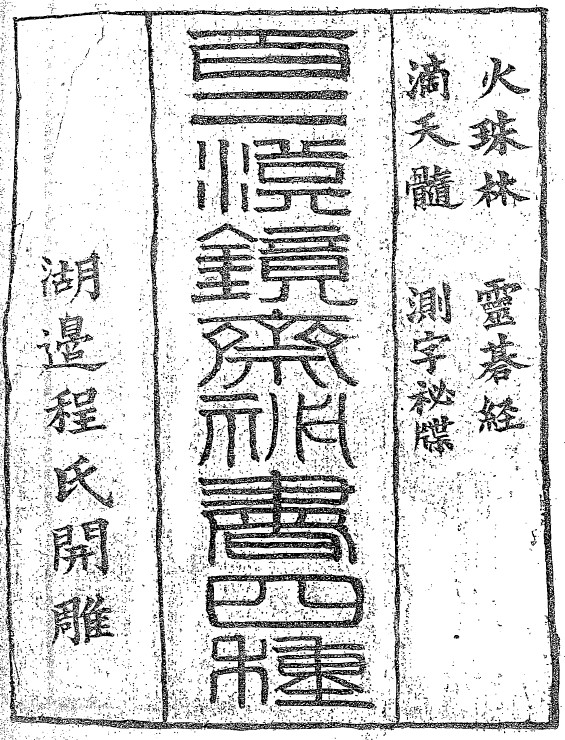 火珠林 靈碁経
滴天髓 測字祕牒
百二漢鏡齋祕書四種
湖邉程氏開雕